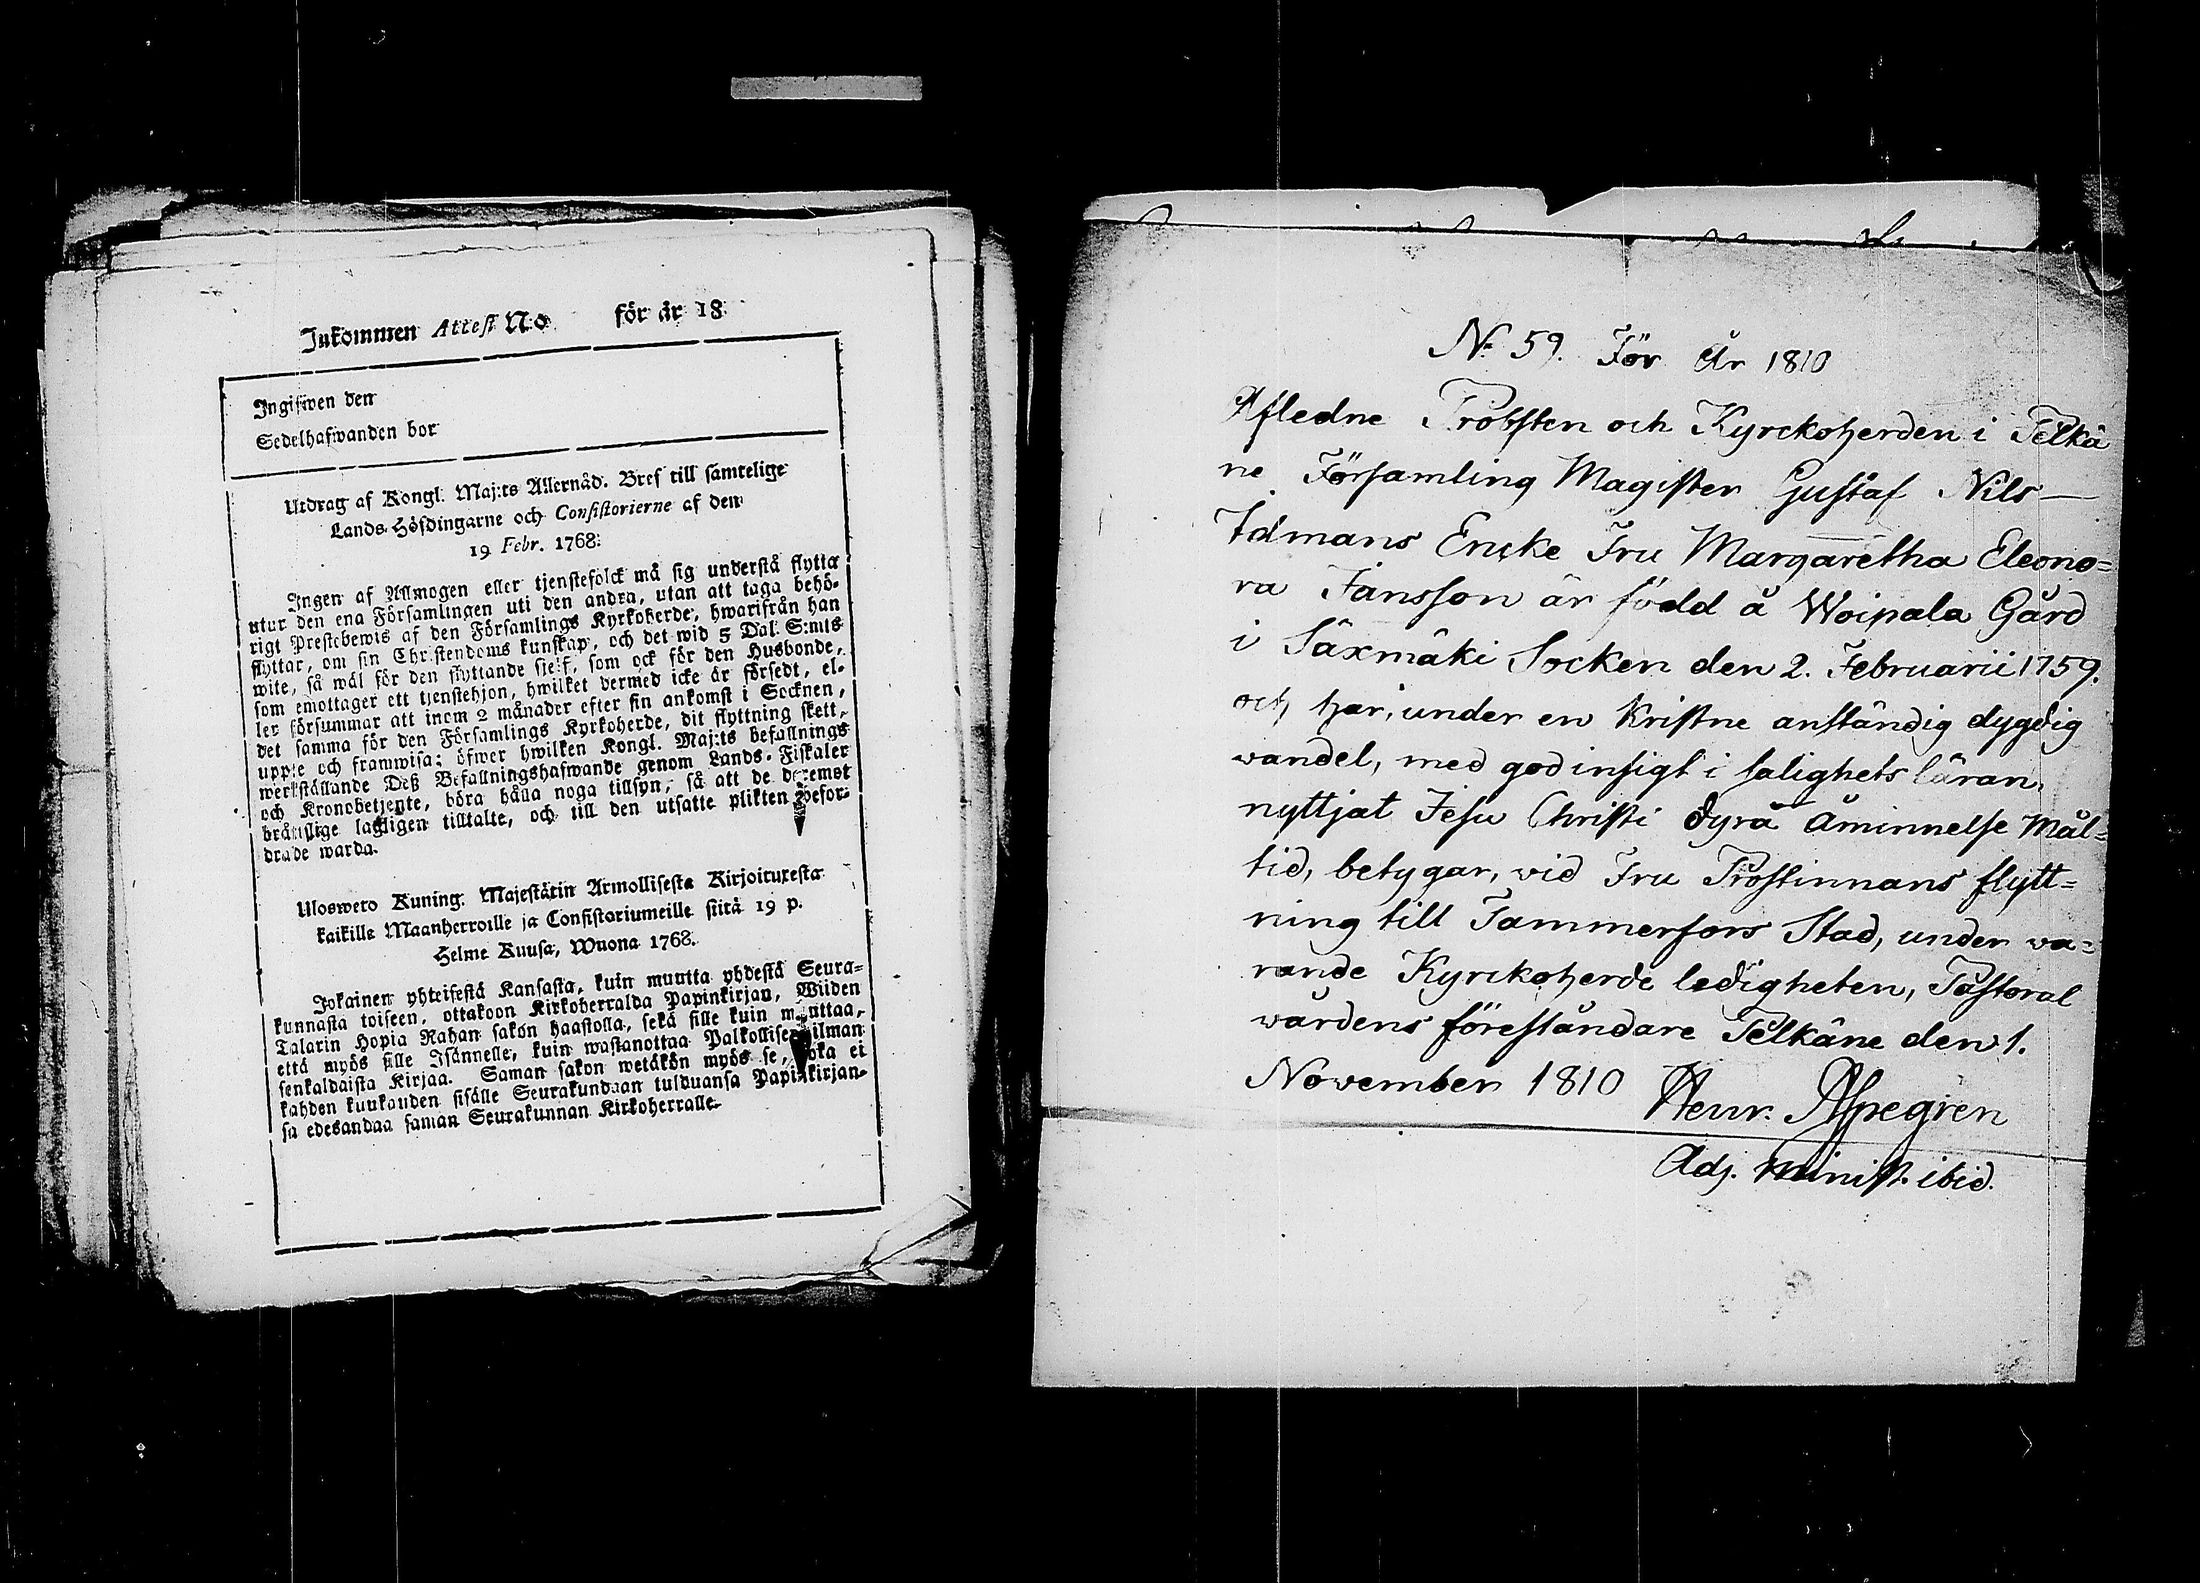 Inkommen Attest No för år 18
Ingifwen den
Sedelhafwanden bor
Utdrag af Kongl. Maj:ts Allernåd. Bref till samtelige
Lands-Höfdingarne och Consistorierne af den
19 Febr. 1768.
Ingen af Allmogen eller tjenstefolck må sig understå flytta
utur den ena Församlingen uti den andra, utan att taga behö-
rigt Prestebewis af den Församlings Kyrkoherde, hwarifrån han
flyttar, om sin Christendoms kunskap, och det wid 5 Dal. S:mts
wite, så wäl för den flyttande sjelf, som ock för den Husbonde,
som emottager ett tjenstehjon, hwilket dermed icke är försedt, el-
ler försummar att inom 2 månader efter sin ankomst i Socknen,
det samma för den Församlings Kyrkoherde, dit flyttning skett,
uppte och framwisa; öfwer hwilken Kongl. Maj:ts befallnings
werkställande Deß Befallningshafwande genom Lands-Fiskaler
och Kronobetjente, böra hålla noga tillsyn, så att de deremot
bråtslige lagligen tilltalte, och till den utsatte plikten befor-
drade warda.
Ulosweto Kuning. Majestätin Armollisesta Kirjoituxesta
kaikille Maanherroille ja Consistoriumeille siitä 19 p.
Helme Kuusa, Wuona 1768.
Jokainen yhteisestä Kansasta, kuin muutta yhdestä Seura-
kunnasta toiseen, ottakoon Kirkoherralda Papinkirjan, Wiiden
Talarin Hopia Rahan sakon haastolla, sekä sille kuin muuttaa,
että myös sille Isännelle, kuin wastanottaa Palkollisen ilman
senkaldaista Kirjaa. Saman sakon wetäkön myös se, joka ei
kahden kuukauden sisälle Seurakundaan tulduansa Papinkirjan-
sa edesandaa saman Seurakunnan Kirkoherralle.
No 59. För År 1810
Afledne Probsten och Kyrckoherden i Pelkä
ne Församling Magister Gustaf Nils
Idmans Encke Fru Margaretha Eleono=
ra Jansson är född å Woipala Gård
i Säxmäki Socken den 2. Februarii 1759.
och har, under en kristne anständig dygdig
wandel, med god insigt i salighets läran,
nyttjat Jesu Christi dyra Åminnelse Mål=
tid, betygar, vid Fru Prostinnans flytt=
ning till Tammerfors Stad, under wa=
rande Kyrckoherde ledigheten, Pastoral
wårdens föreståndare Pelkäne den 1.
November 1810 Henr. Aspegren
Adj. Minist. ibid.